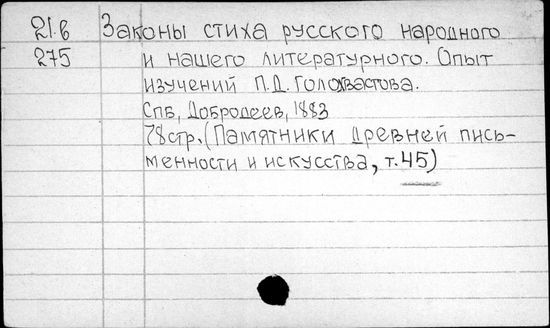 21.6 Законы стиха русского народного
275 и нашего литературного. Опыт
изучений П.Д. Голохвастова.
Спб, Добродеев, 1883
78стр. (Памятники древней пись-
менности и искусства, т.45)